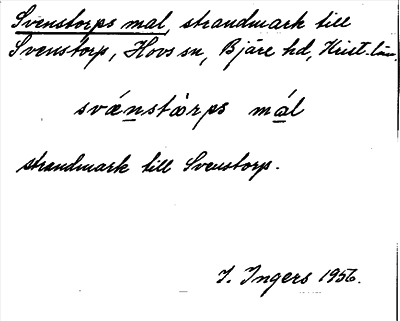 Svenstorps mal, strandmark till
Svenstorp, Hovs sn, Bjäre hd, Krist. län.
svænstɑrps mɑl
strandmark till Svenstorp.
I. Ingers 1956.